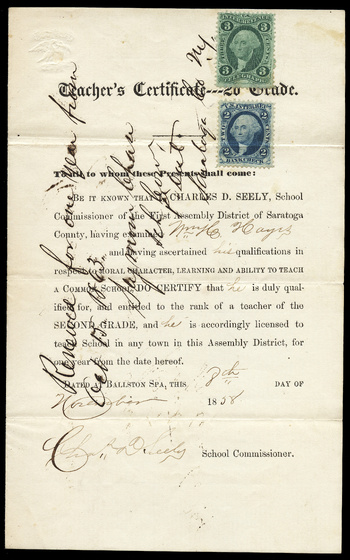 U.S. INTER. REV.
3 3
TELEGRAPH
U.S. INTER. REV.
2 2
BANK CHECK
Teacher's Certificate---2D Grade.
To all to whom these Presents shall come:
BE IT KNOWN THAT I CHARLES D. SEELY, School
Commissioner of the First Assembly District of Saratoga
County, having examined Wm C Hayes
and having ascertained his qualifications in
respect to MORAL CHARACTER, LEARNING AND ABILITY TO TEACH
A COMMON SCHOOL DO CERTIFY that he is duly qual-
ified for, and entitled to the rank of a teacher of the
SECOND GRADE, and he is accordingly licensed to
teach School in any town in this Assembly District, for
one year from the date hereof.
DATED AT BALLSTON SPA, THIS 8th DAY OF
November 1858
Chas D Seely School Commissioner.
Renewed for one year from
Oct 1863
School Com
Saratoga Co NY